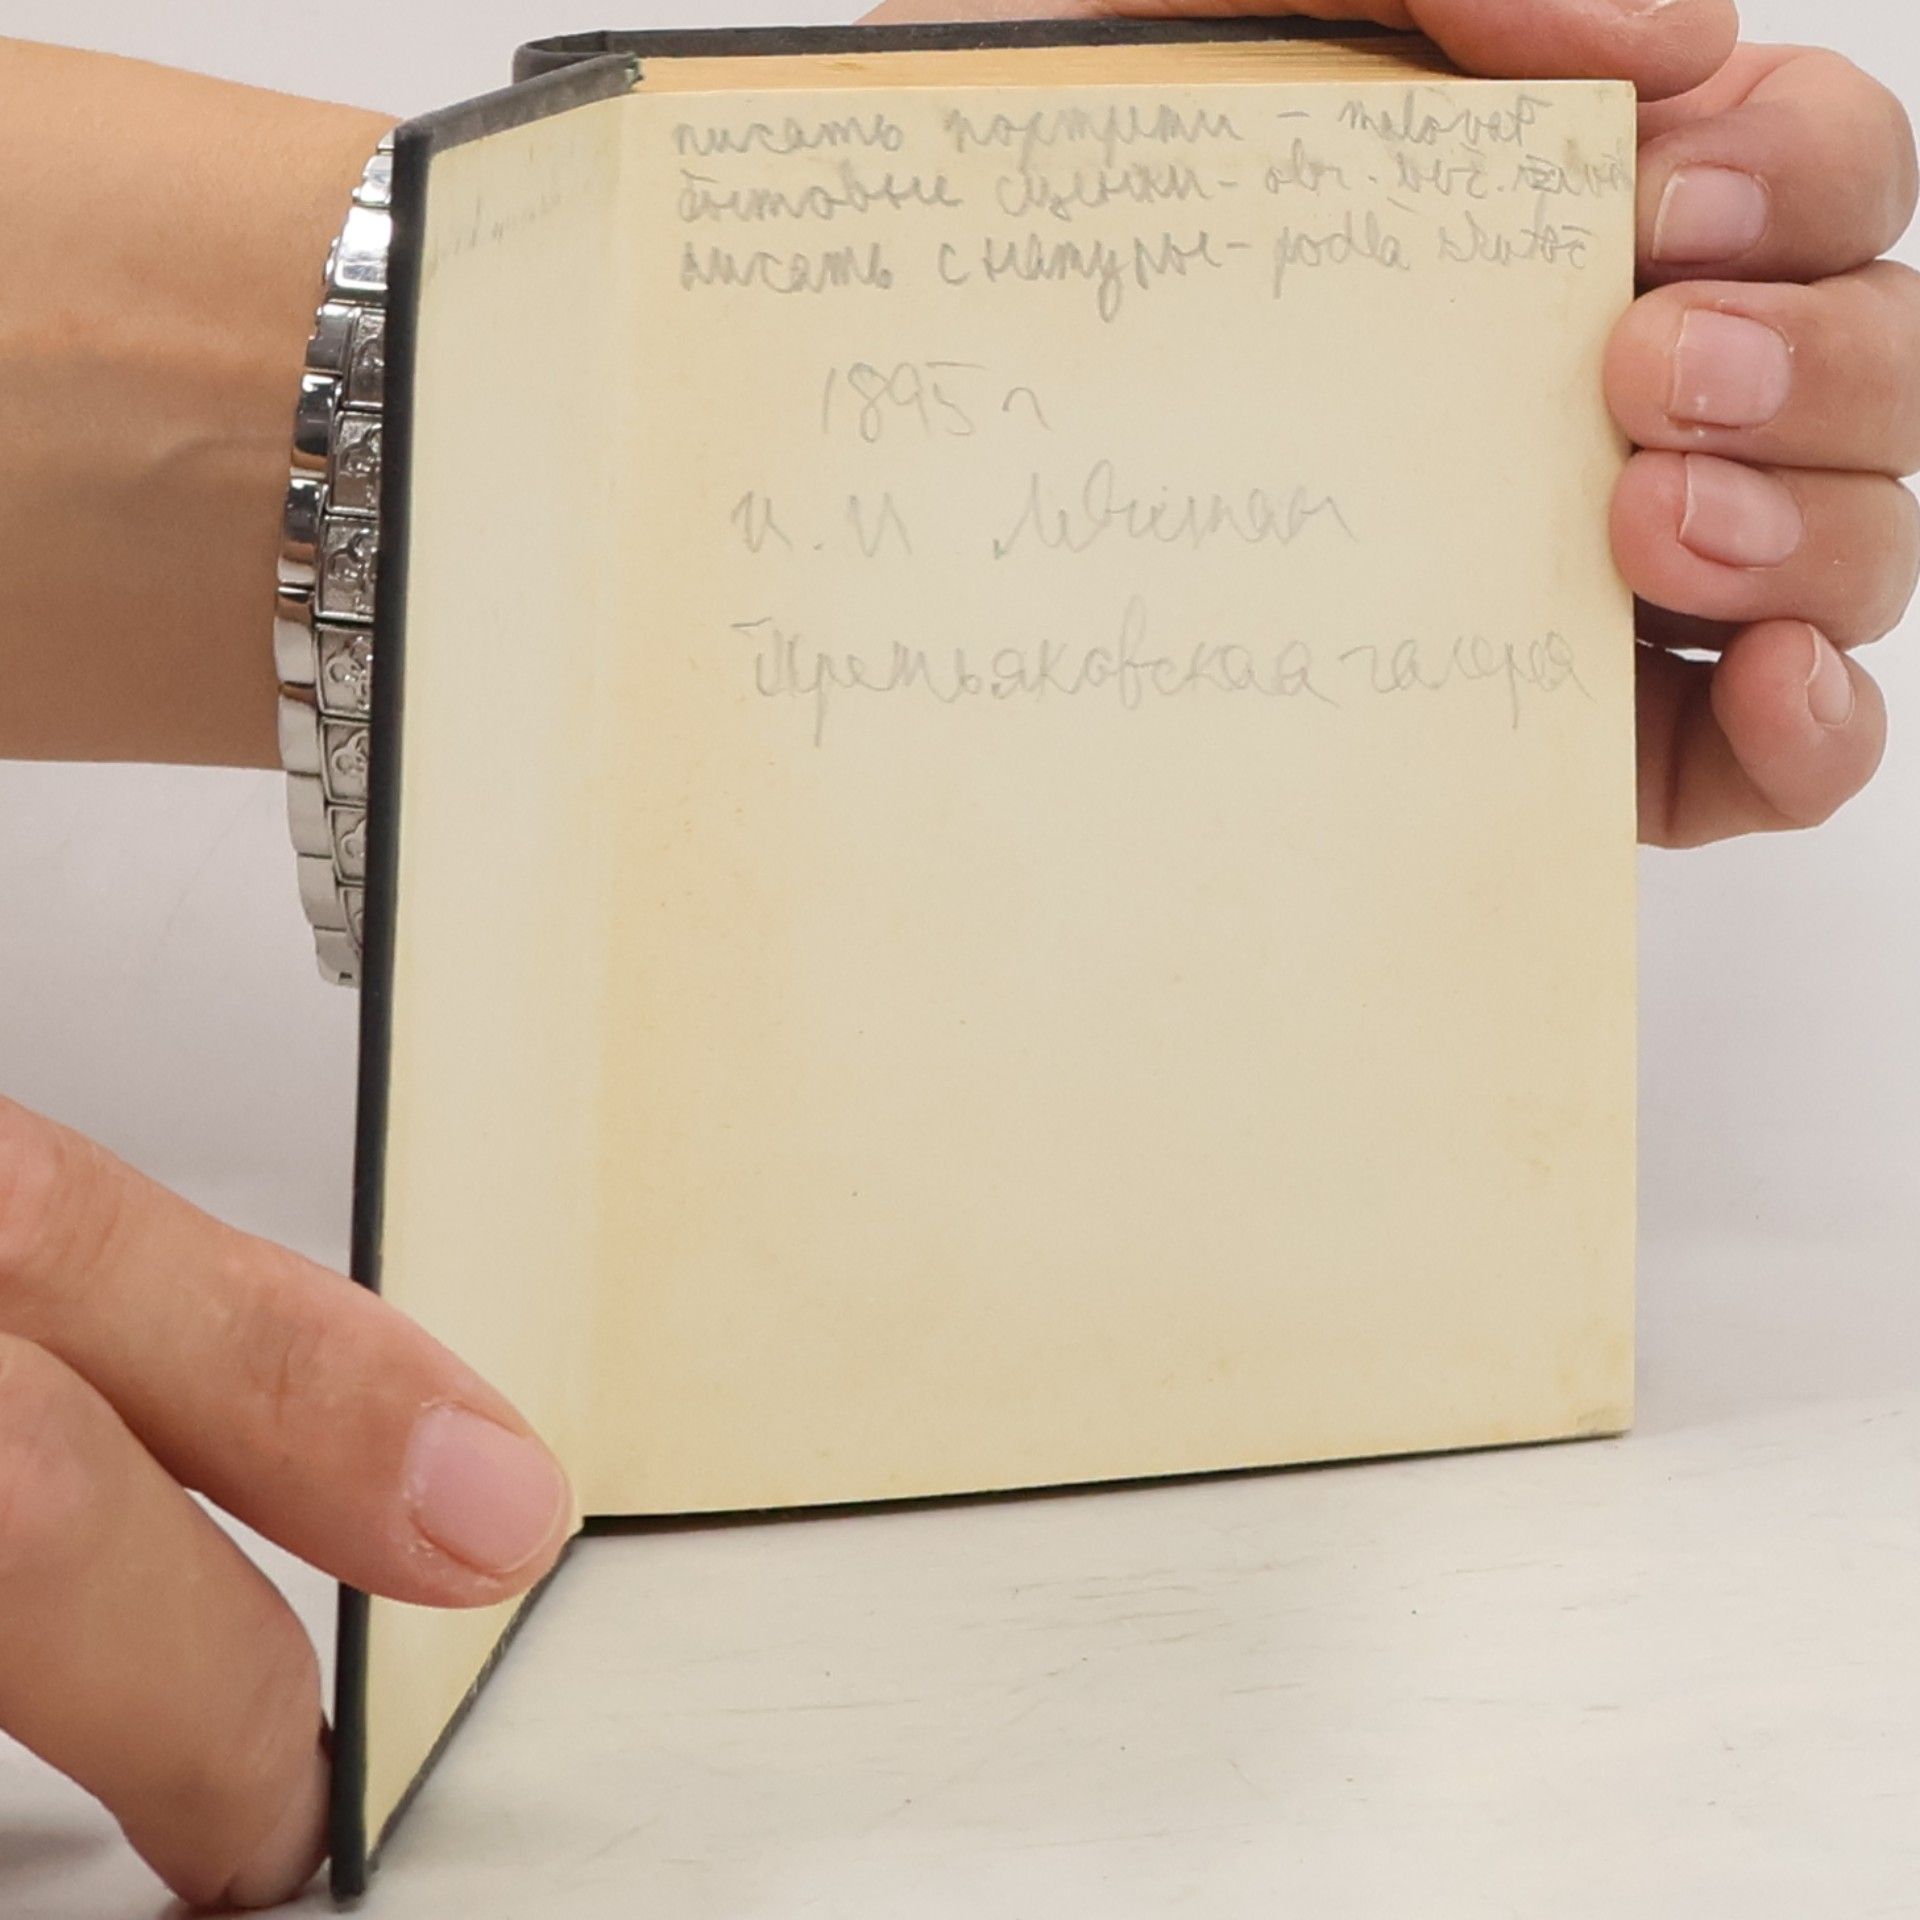 писать портреты - malovat
бытовые сценки - obr.
писать с натуры - podla
1895 г
И. И Левитан
Третьяковская галерея